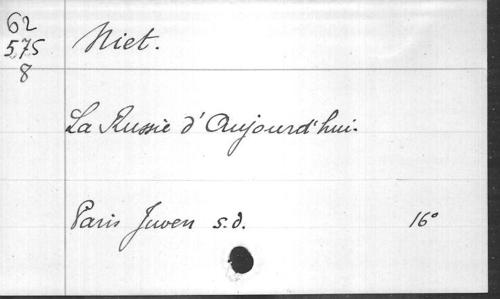 62
575
8
Niet.
La Russie d'Aujourd'hui.
Paris Juven s.d. 16°